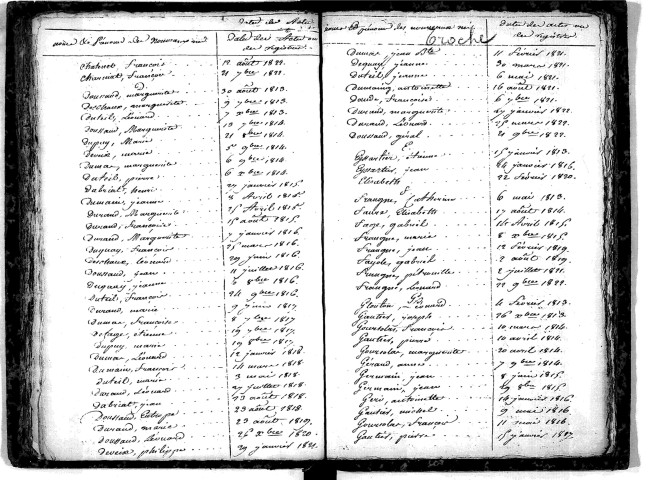 noms et prénoms des nouveaux nés
Dates des Actes ou des registres
Chatenet, François 12 août 1822.
Charniat, François 21 7bre 1822.
D
Doussaud, marguerite 30 août 1813.
Deschaux, marguerite 9 7bre 1813.
Duteil, Léonard 7 9bre 1813.
Doussaud, Marguerite 13 7bre 1814.
Dupuy, Marie 21 8bre 1814.
marie 5 9bre 1814.
Dumas, marguerite 6 9bre 1814.
Duteil, pierre 6 xbre 1814.
Dabriat, henri 27 janvier 1815.
Dumain, jeanne 8 Avril 1815.
Durand, Marguerite 25 Avril 1815.
Durand, Françoise 15 août 1815.
Durand, Marguerite 7 janvier 1816.
Duquay, François 25 mars 1816.
Deschaux, Léonard 29 juin 1816.
Doussaud, jean 11 juillet 1816.
Deguay, jeanne 6 8bre 1816.
Duteil, François 24 9bre 1816.
Durand, marie 9 juin 1817.
Dumas, Françoise 8 7bre 1817.
Defaye, étienne 19 7bre 1817.
Dupuy, marie 19 8bre 1817.
Dumas, Léonard 12 janvier 1818.
Dumain, François 14 mars 1818.
Duteil, marie 3 mai 1818.
Durand, Léonard 27 juillet 1818.
Dabriat, jean 23 août 1818.
Doussaud, 23 août 1818.
Durand, marie 23 août 1819.
Doussaud, Léonard 26 xbre 1820.
Deveix, philippe 29 janvier 1821.
noms et prénoms des nouveaux nés
Troche
dates des actes ou des registres
Dumas, jean Bte 11 Février 1821.
Deguay, jeanne 30 mars 1821.
Duteil, jeanne 6 mai 1821.
Dumoung, antoinette 16 août 1821.
Daude, Françoise 6 7bre 1821.
Durand, marguerite 27 janvier 1822.
Durand, Léonard 25 mars 1822.
Doussaud, géral 21 9bre 1822.
E
Espartier, étienne 15 janvier 1813.
Espartier, jean 24 janvier 1816.
Elisabeth 22 février 1820.
F
Frangne, Catherine 6 mai 1813.
Faure, Elisabeth 17 août 1814.
Faye, gabriel 14 Avril 1815.
Frangne, marie 8 xbre 1815.
Frangne, jean 12 Février 1819.
Fayole, gabriel 2 août 1819.
Frangne, pétronille 2 juillet 1821.
Frangne, Léonard 22 9bre 1822.
G
Glouton, Léonard 4 Février 1813.
Gautier, joseph 26 xbre 1813.
Gouzolas, François 10 mars 1814.
Gautier, pierre 10 avril 1814.
Gouzolas, marguerite 20 avril 1814.
Géraud, anne 7 9bre 1814.
Germain, jean 8 juin 1815.
Germain, jean 29 8bre 1815.
Géri, antoinette 14 janvier 1816.
Gautier, michel 9 mai 1816.
Gouzolas, François 11 mai 1816.
Gautier, pierre 15 janvier 1817.